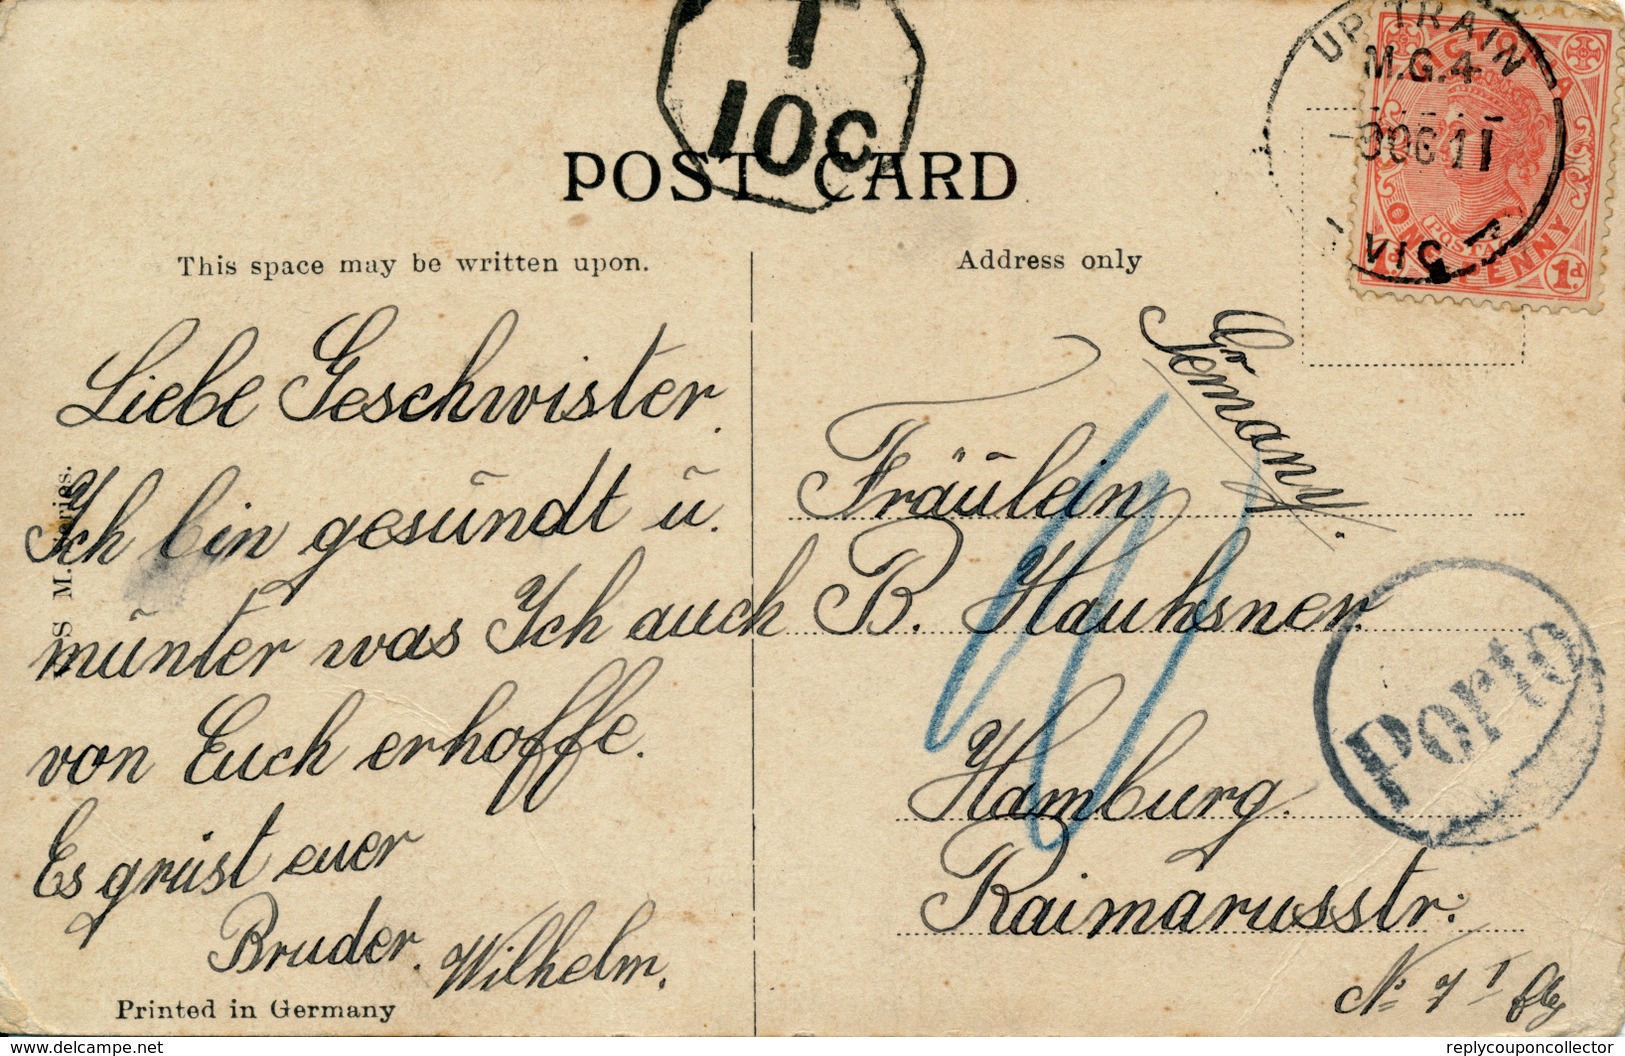 T
10c
POST CARD
UP TRAIN
M.G.4
VIC
VICTORIA
POSTAGE
ONE PENNY
1d
This space may be written upon.
Address only
Germany.
Liebe Geschwister.
Ich bin gesund u.
munter was Ich auch
von Euch erhoffe.
Es grüst euer
Bruder. Wilhelm.
Fräulein
B. Hauhsner.
Hamburg.
Raimarusstr:
No 7 I
Porto
Printed in Germany
delcampe.net
replycouponcollector